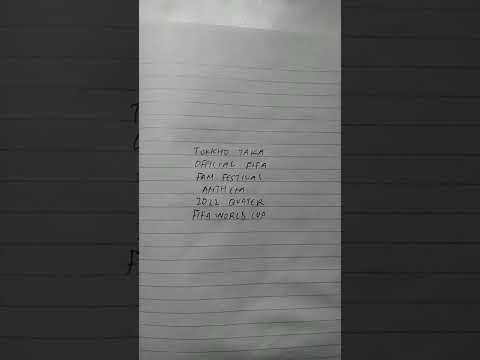 TUKOH TAKA
OFFICIAL FIFA
FAN FESTIVAL
ANTHEM
2022 QUATER
FIFA WORLD CUP